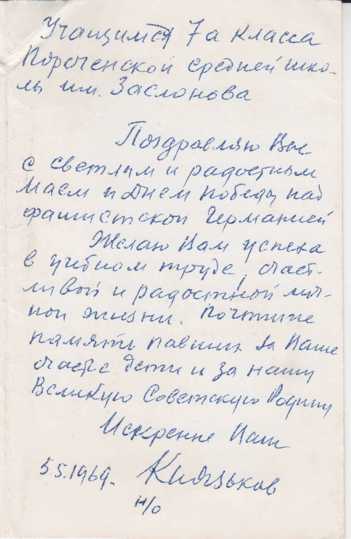 Учащимся 7а класса
Пороченской средней шко-
лы им. Заслонова
Поздравляю Вас
с светлым и радостным
Маем и Днем Победы над
фашистской Германией
Желаю Вам успеха
в учебном труде, счаст-
ливой и радостной лич-
ной жизни. Почтите
память павших за Ваше
счастье дети и за нашу
Великую Советскую Родину
Искренне Ваш
5.5.1969. Князьков
п/о